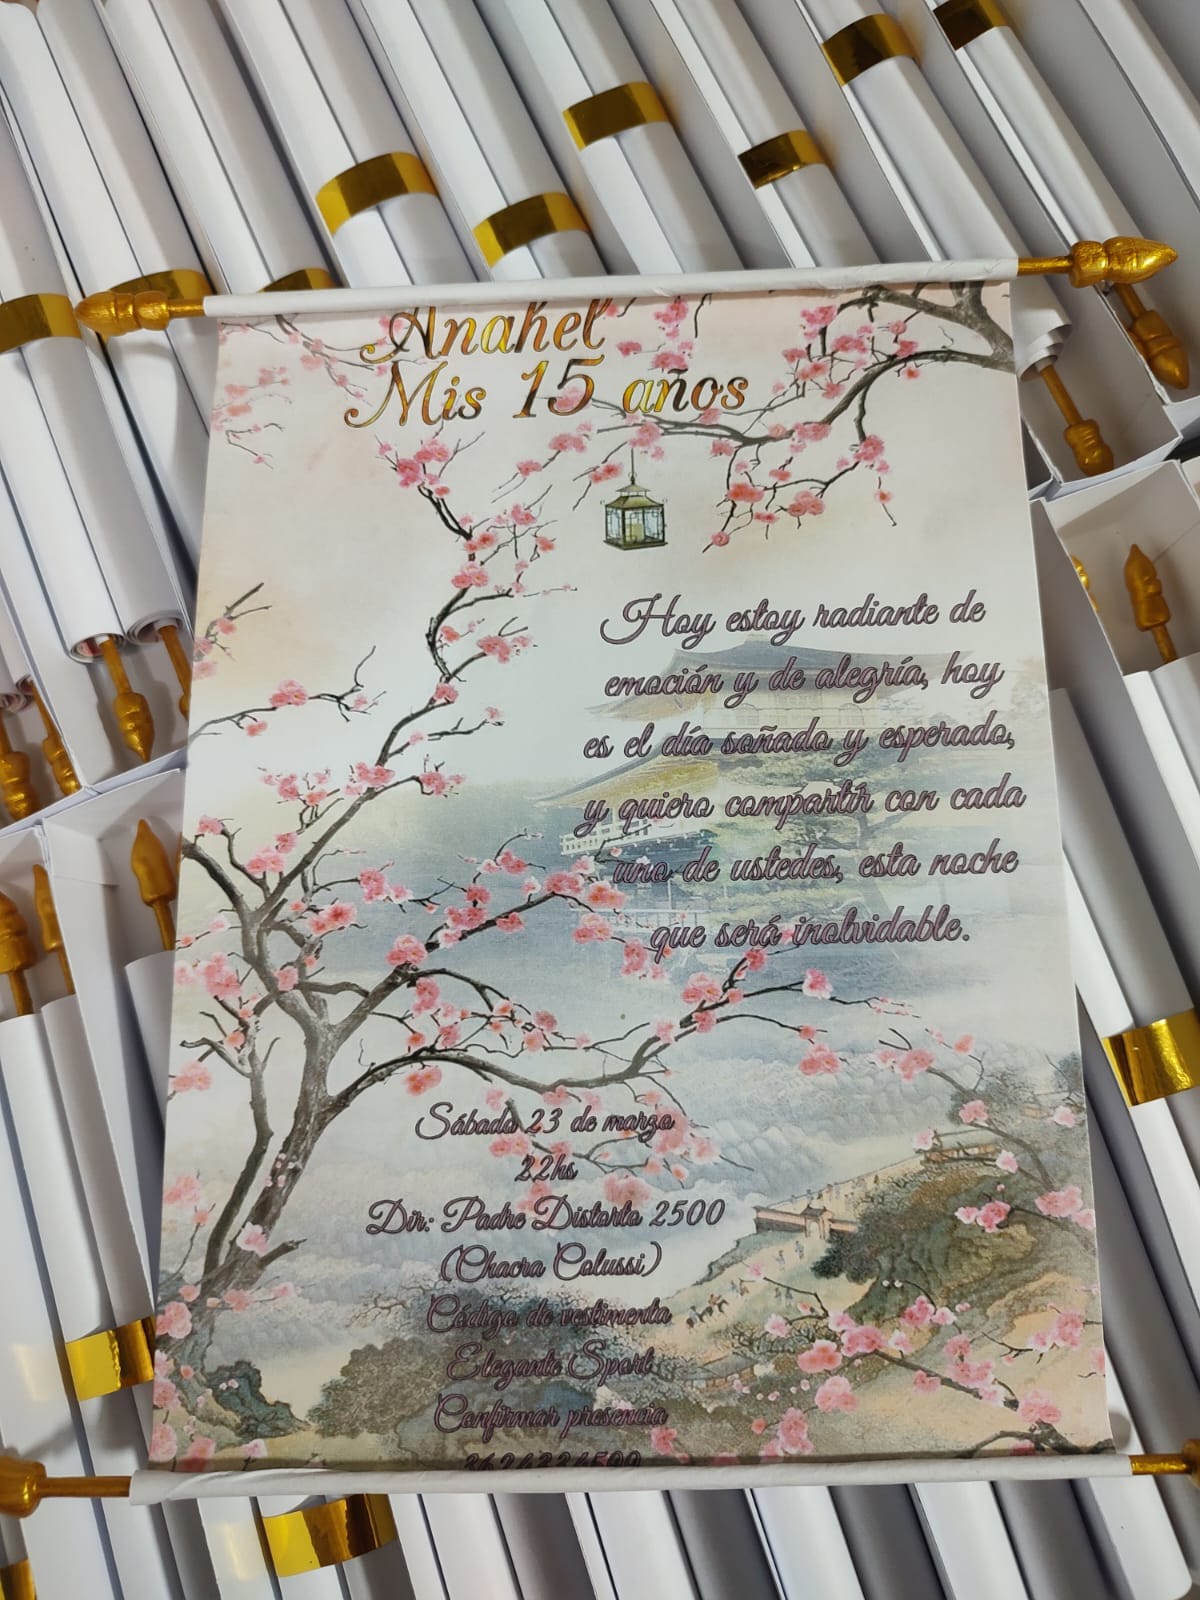 Anahel
Mis 15 años
Hoy estoy radiante de
emoción y de alegría, hoy
es el día soñado y esperado,
y quiero compartir con cada
uno de ustedes, esta noche
que será inolvidable.
Sábado 23 de marzo
22hs
Dir: Padre Distorto 2500
(Chacra Colussi)
Código de vestimenta
Elegante Sport
Confirmar presencia